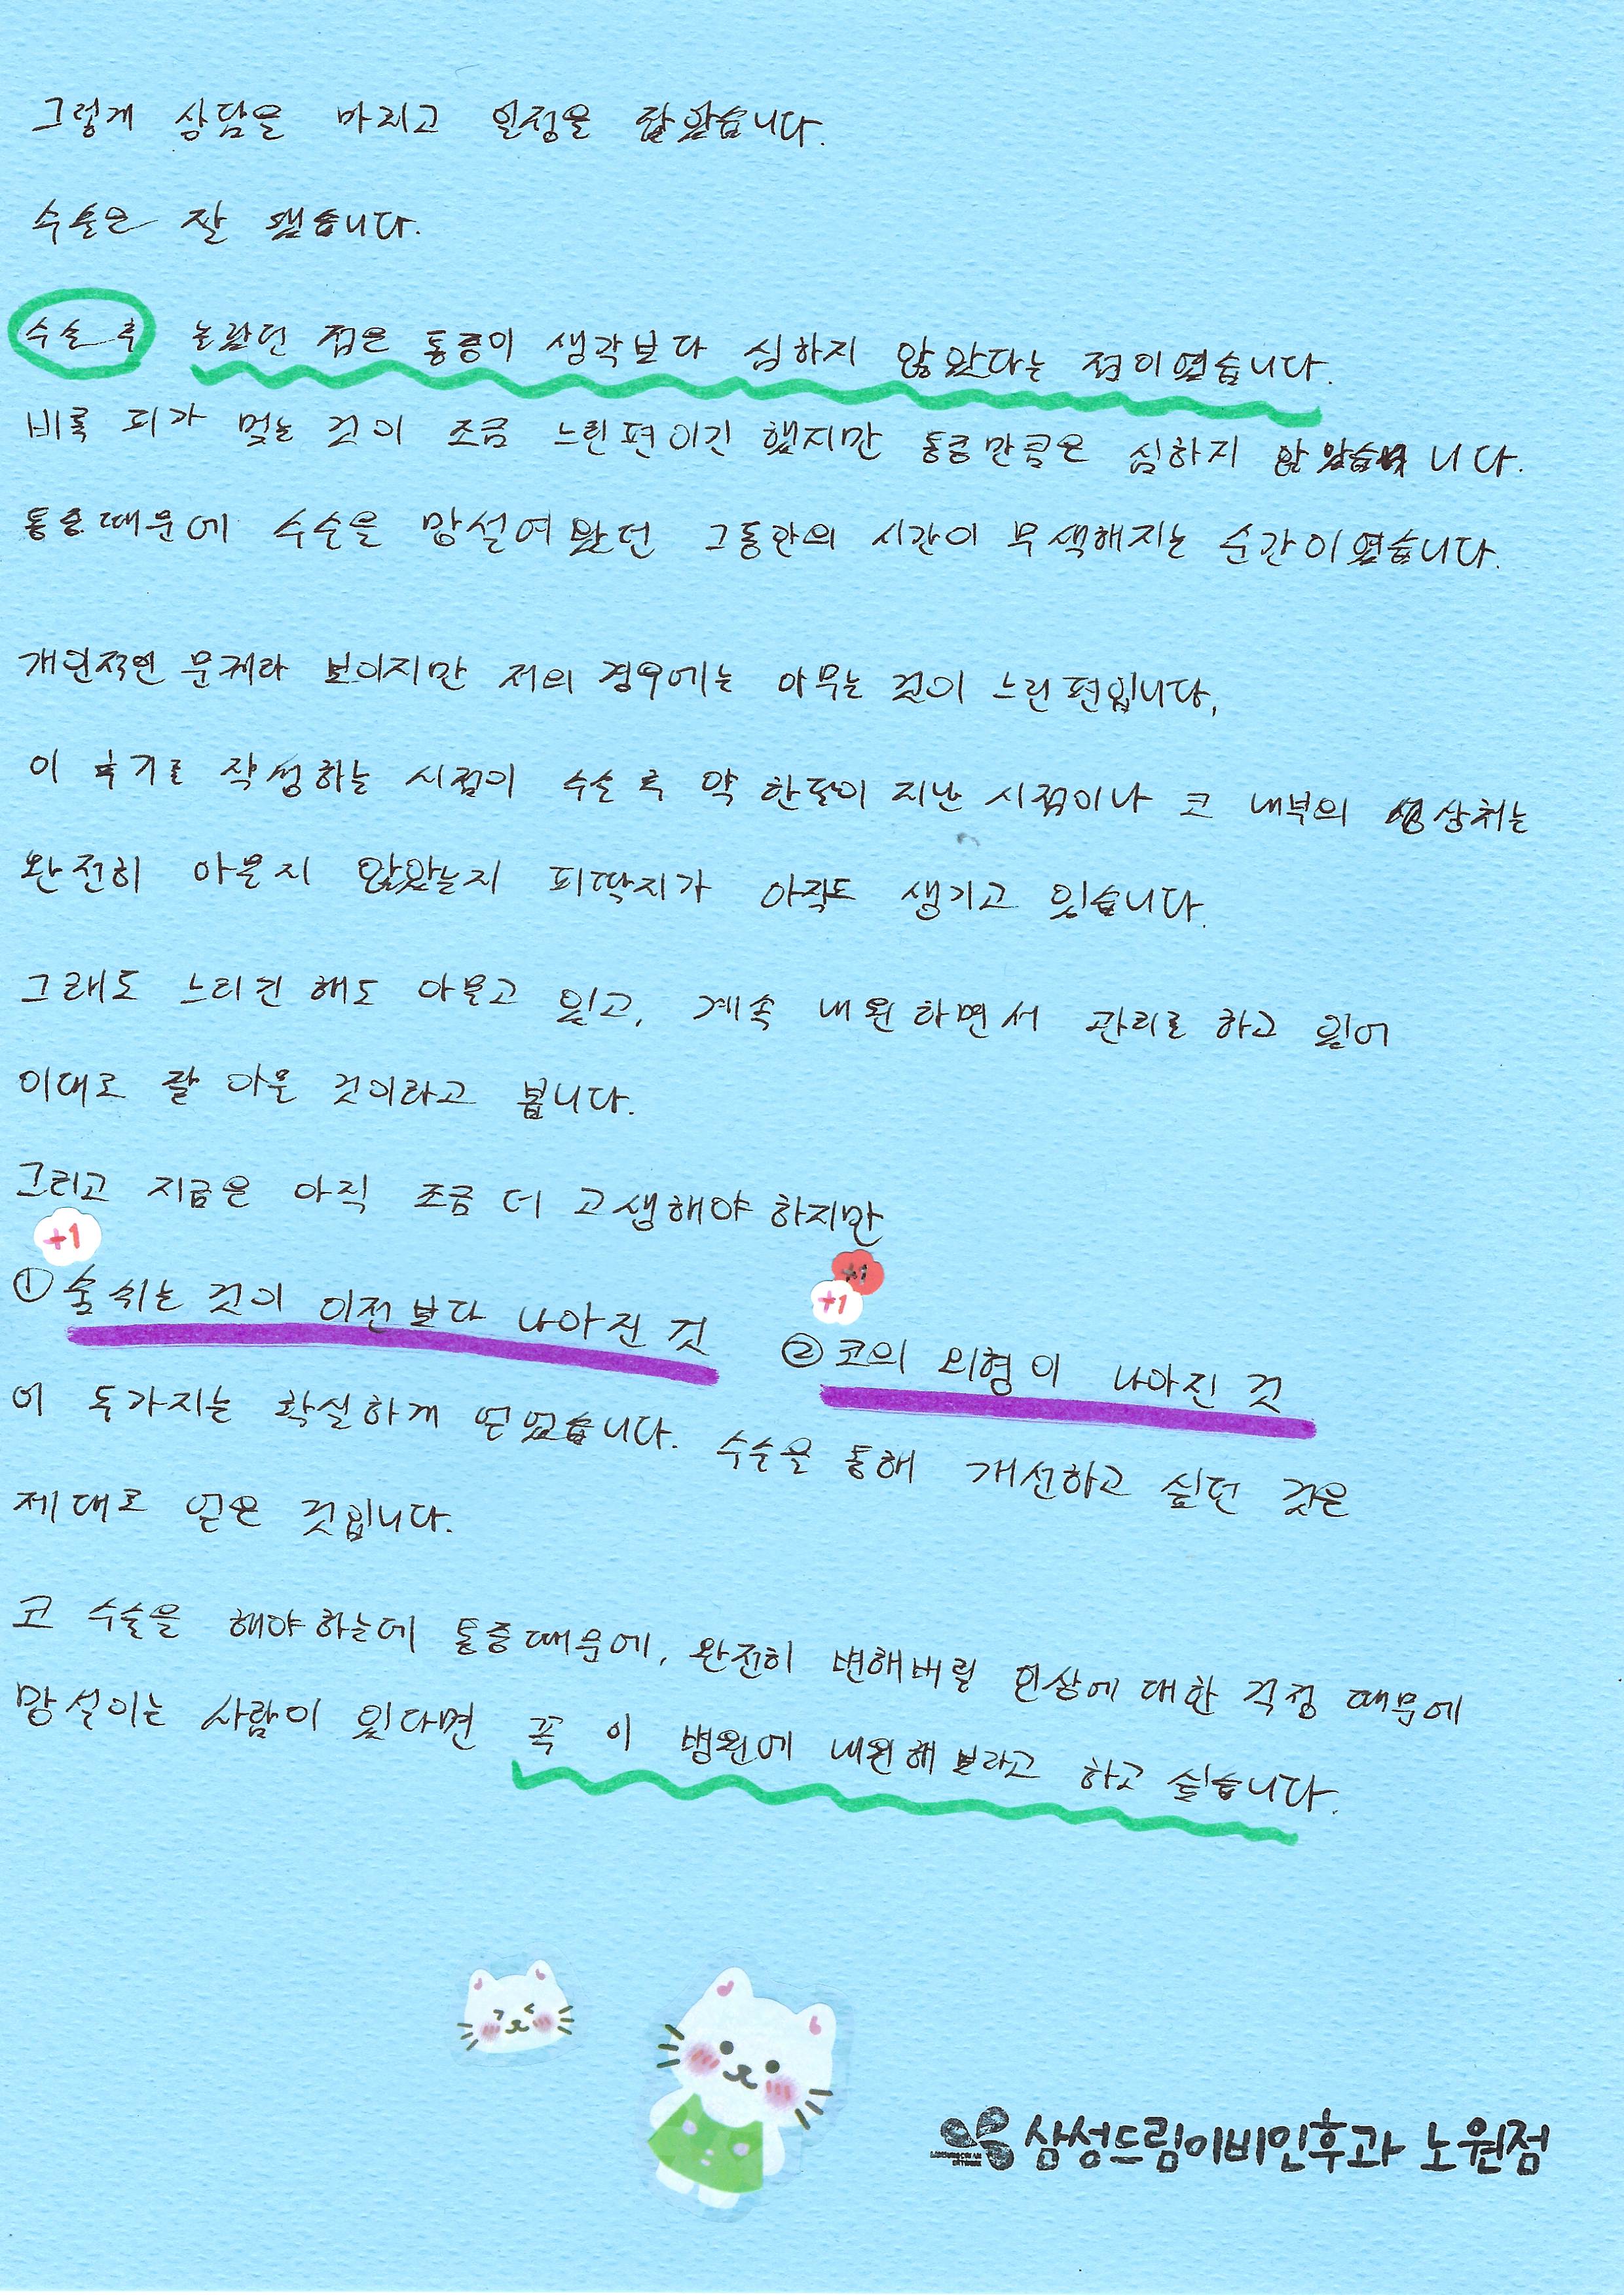 그렇게 상담을 마치고 일정을 잡았습니다.
수술은 잘 됐습니다.
수술 후 놀랐던 점은 통증이 생각보다 심하지 않았다는 점이였습니다.
비록 피가 멎는 것이 조금 느린편이긴 했지만 통증만큼은 심하지 않았습니다.
통증때문에 수술을 망설여왔던 그동안의 시간이 무색해지는 순간이였습니다.
개인적인 문제라 보이지만 저의 경우에는 아무는 것이 느린편입니다.
이 후기를 작성하는 시점이 수술 후 약 한달이 지난 시점이나 코 내부의 상처는
완전히 아물지 않았는지 피딱지가 아직도 생기고 있습니다.
그래도 느리긴 해도 아물고 있고, 계속 내원하면서 관리를 하고 있어
이대로 잘 아물 것이라고 봅니다.
그리고 지금은 아직 조금 더 고생해야 하지만
+1
+1
+1
① 숨쉬는 것이 이전보다 나아진 것 ② 코의 외형이 나아진 것
이 두가지는 확실하게 얻었습니다. 수술을 통해 개선하고 싶던 것은
제대로 얻은 것입니다.
코 수술을 해야하는데 통증때문에, 완전히 변해버릴 인상에 대한 걱정 때문에
망설이는 사람이 있다면 꼭 이 병원에 내원해 보라고 하고 싶습니다.
삼성드림이비인후과 노원점